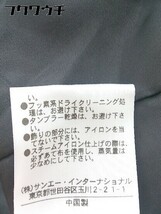 フクウクワ
●フッ素系ドライクリーニング処
理は、お避け下さい。
●タンブラー乾燥は、お避け下さ
い。
●飾りの部分には、アイロンを当
てないで下さい。
●スチームアイロン仕上げの際は、
浮かせて蒸気を使用して下さい。
(株)サンエー・インターナショナル
東京都世田谷区玉川2-21-1
中国製